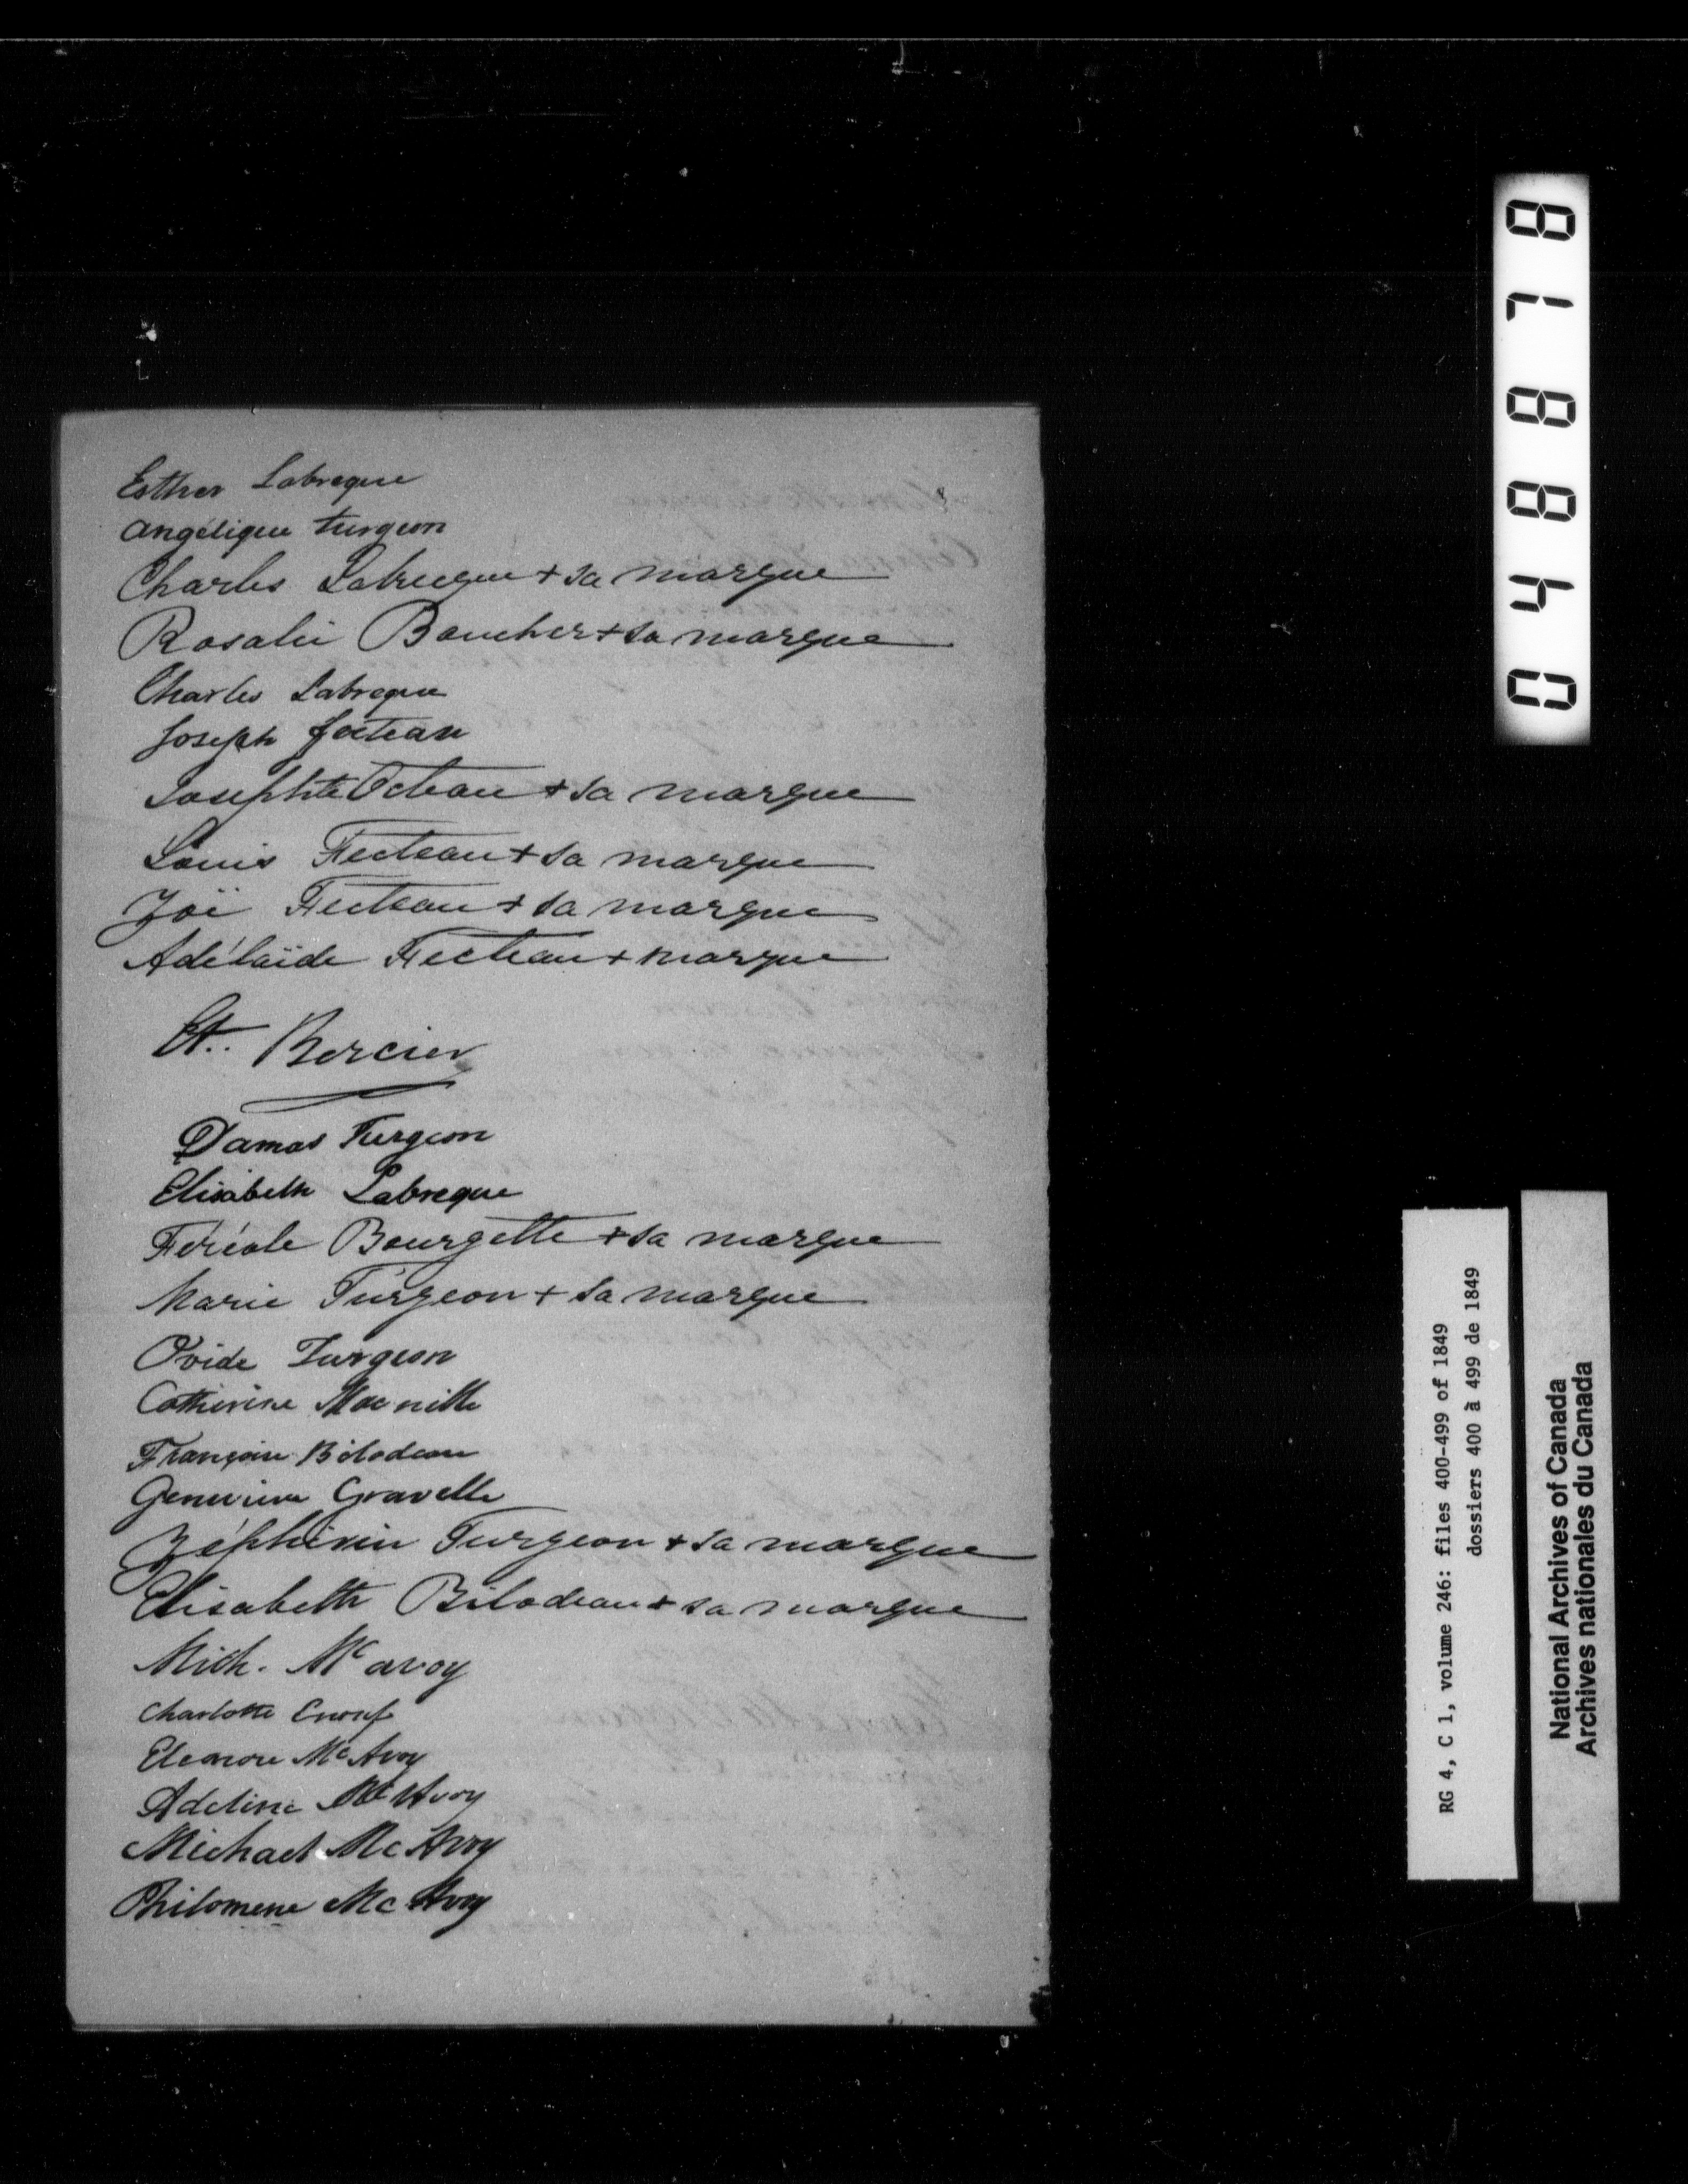 Esther Labreque
Angélique turgeon
Charles Labrecque + sa marque
Rosalie Boucher + sa marque
Charles Labreque
Joseph fecteau
Josephte Octeau + sa marque
Louis Fecteau + sa marque
Zoë Fecteau + sa marque
Adélaïde Fecteau + marque
Et. Bercier
Damas Turgeon
Elisabeth Labreque
Féréole Bourgette + sa marque
Marie Turgeon + sa marque
Ovide Turgeon
Catherine
François Bilodeau
Genevieve Gravelle
Zéphirin Turgeon + sa marque
Elisabeth Bilodeau + sa marque
Mich. Mc avoy
Charlotte Enouf
Eleanore Mc Avoy
Adeline Mc Avoy
Michael Mc Avoy
Philomene Mc Avoy
048878
RG 4, C 1, volume 246: files 400-499 of 1849
dossiers 400 à 499 de 1849
National Archives of Canada
Archives nationales du Canada